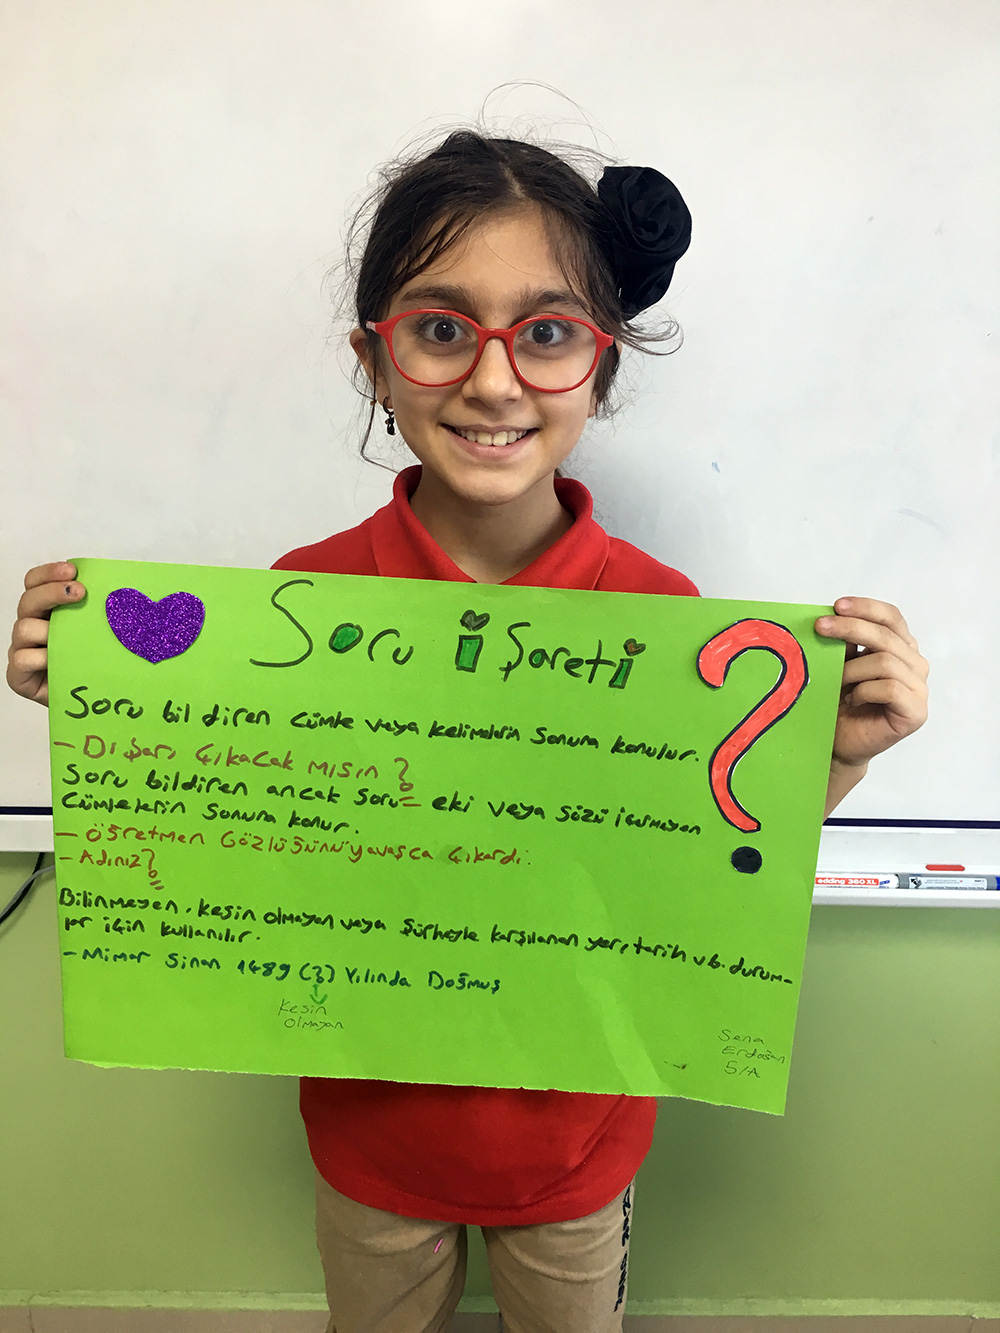 Soru işareti
Soru bildiren cümle veya kelimelerin sonuna konulur.
- Dışarı Çıkacak mısın?
Soru bildiren ancak soru eki veya sözü içermeyen
Cümlelerin sonuna konur.
- Öğretmen Gözlüğünü yavaşca çıkardı.
- Adınız?
Bilinmeyen, kesin olmayan veya şüpheyle karşılanan yer, tarih vb. durum-
lar için kullanılır.
- Mimar Sinan 1489 (?) Yılında Doğmuş
Kesin
olmayan
Sena
Erdoğan
5/A
edding 380 XL